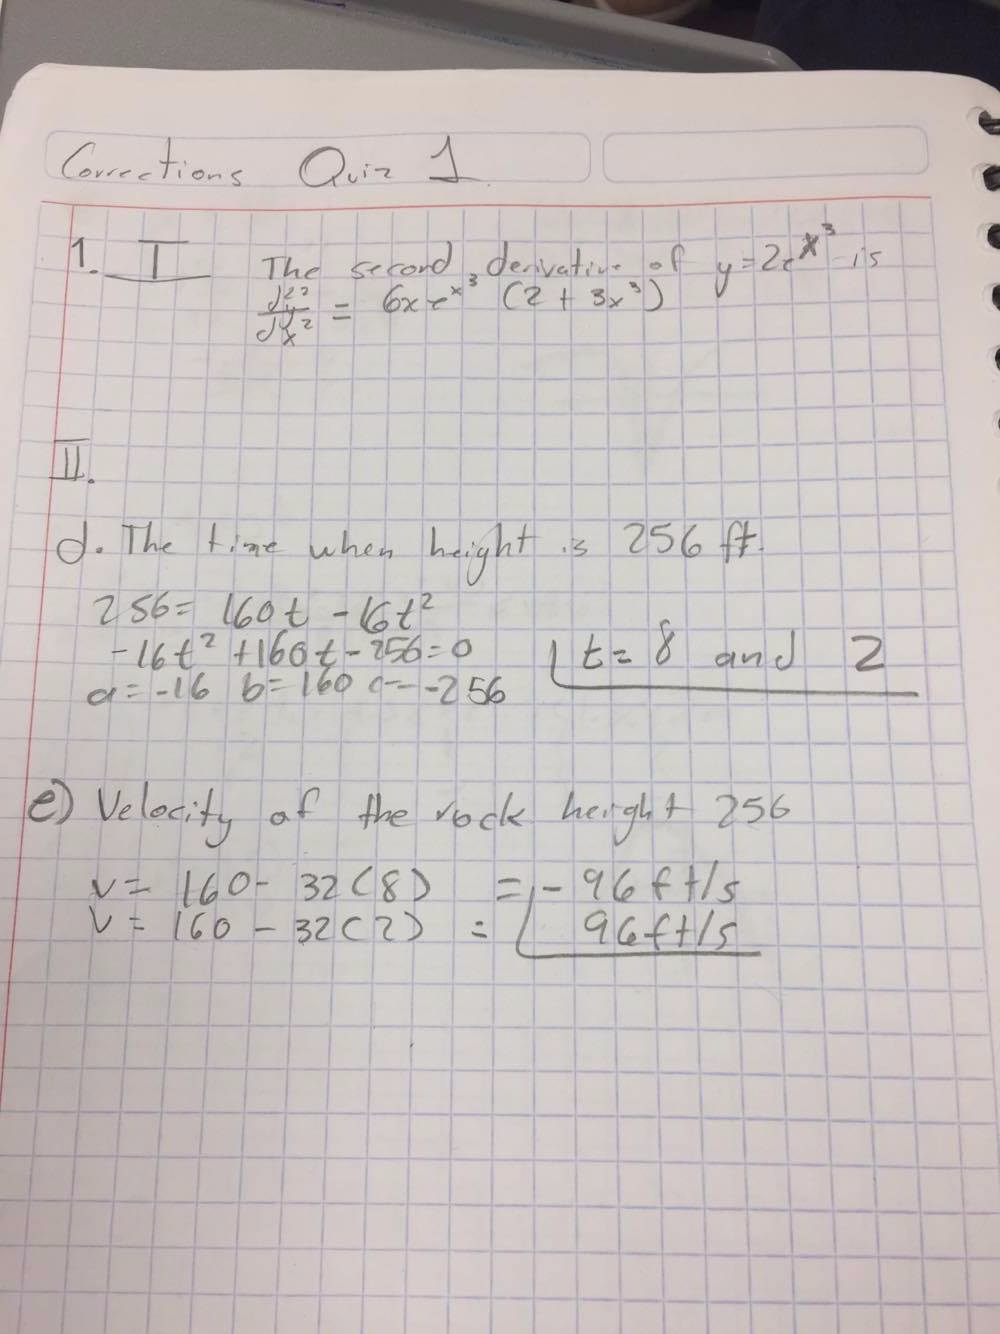 Corrections Quiz 1
1. T The second derivative of y=2e^x^3 is
d^2y/dx^2 = 6xe^x^3 (2 + 3x^3)
II.
d. The time when height is 256 ft.
256= 160t - 16t^2
-16t^2 +160t-256=0
t= 8 and 2
a=-16 b=160 c=-256
e) Velocity of the rock height 256
v= 160- 32(8) =- 96ft/s
v= 160 - 32(2) = 96ft/s